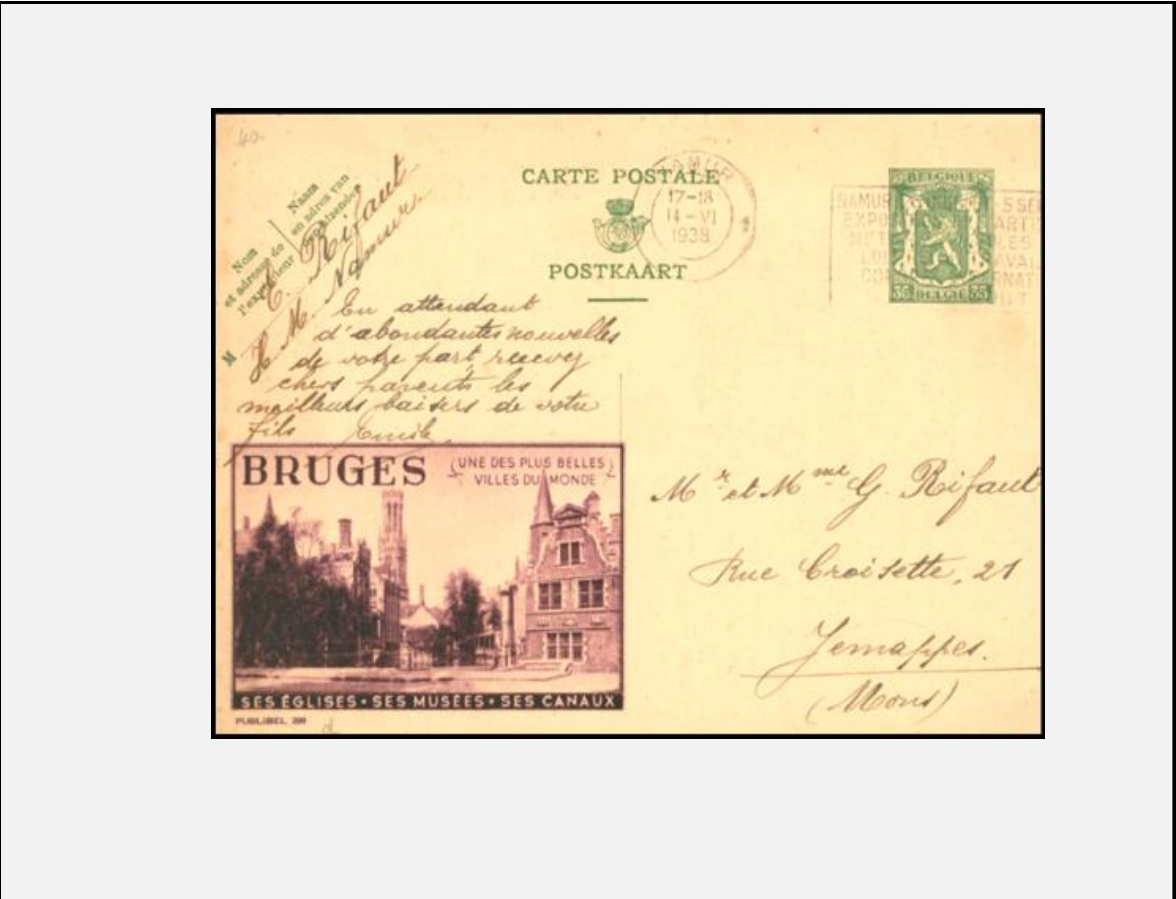 40
Nom
et adresse de
l'expéditeur
Naam
en adres van
afzender
E. Rifaut
H. M. Namur
M
CARTE POSTALE
POSTKAART
NAMUR
17-18
14-VI
1938
BELGIQUE
35 BELGIE 35
NAMUR
EXPO
ART
LES
En attendant
d'abondantes nouvelles
de votre part, recevez
chers parents les
meilleurs baisers de votre
fils Emile.
BRUGES
UNE DES PLUS BELLES
VILLES DU MONDE
SES ÉGLISES • SES MUSÉES • SES CANAUX
PUBLIBEL
Mr et Mme G. Rifaut
Rue Croisette, 21
Jemappes.
(Mons)